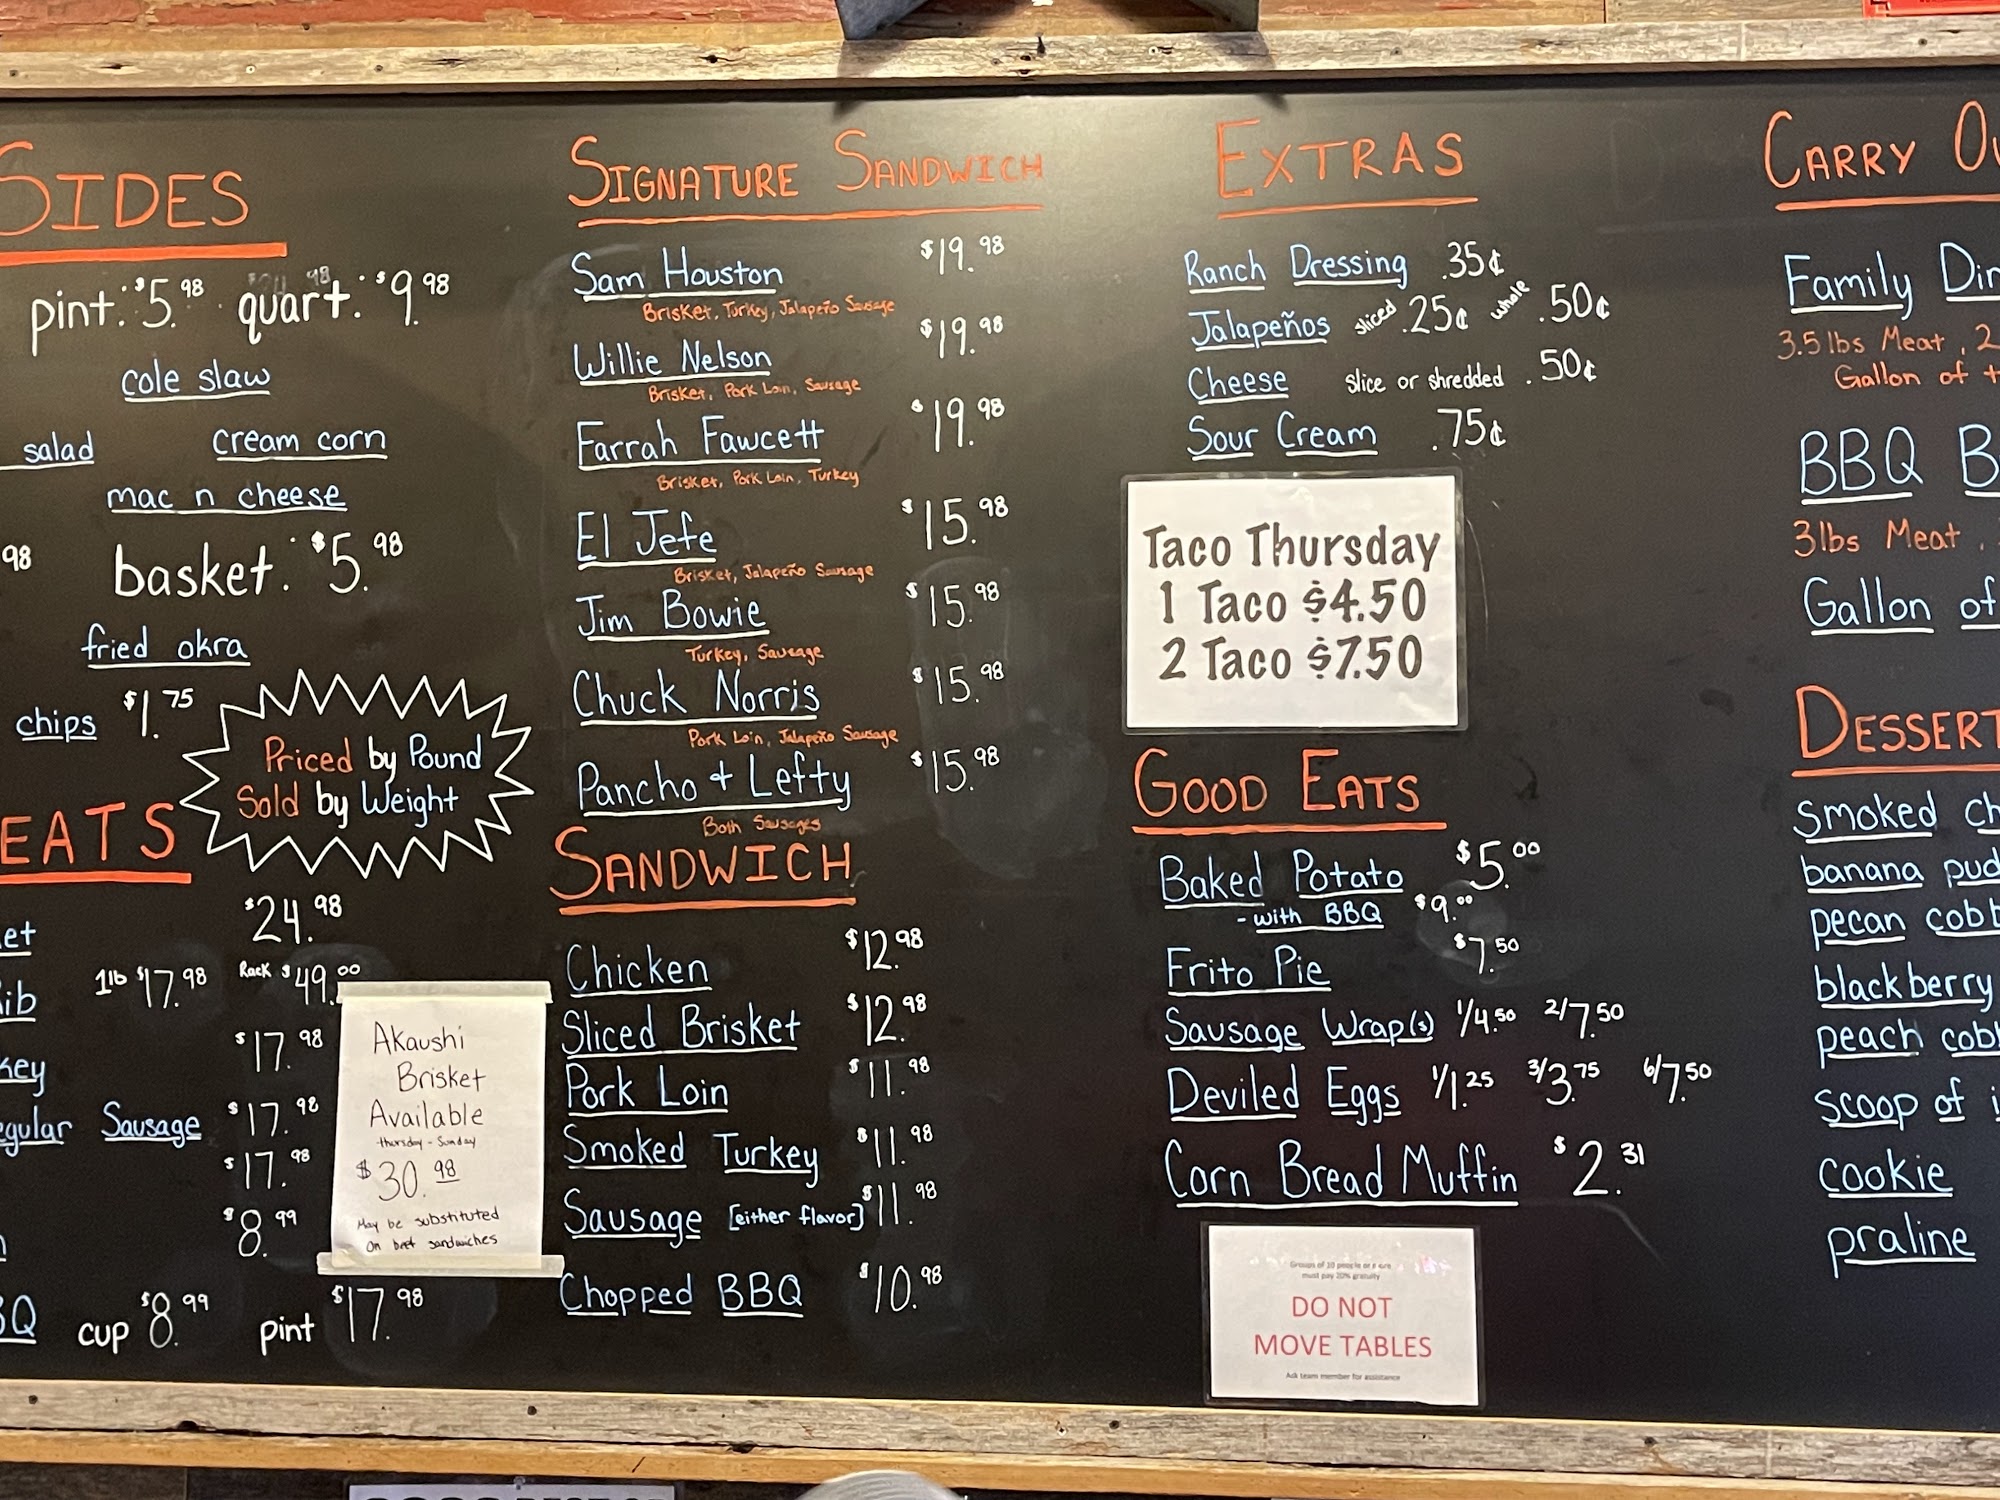 SIDES
pint: $5.98 quart: $9.98
cole slaw
salad cream corn
mac n cheese
98 basket: $5.98
fried okra
chips $1.75
Priced by Pound
Sold by Weight
EATS
et $24.98
ib 1lb $17.98 Rack $49.00
key $17.98
egular Sausage $17.98
$17.98
$8.99
BQ cup $8.99 pint $17.98
Akaushi
Brisket
Available
thursday - Sunday
$30.98
May be substituted
On beef sandwiches
SIGNATURE SANDWICH
Sam Houston $19.98
Brisket, Turkey, Jalapeño Sausage
Willie Nelson $19.98
Brisket, Pork Loin, Sausage
Farrah Fawcett $19.98
Brisket, Pork Loin, Turkey
El Jefe $15.98
Brisket, Jalapeño Sausage
Jim Bowie $15.98
Turkey, Sausage
Chuck Norris $15.98
Pork Loin, Jalapeño Sausage
Pancho + Lefty $15.98
Both Sausages
SANDWICH
Chicken $12.98
Sliced Brisket $12.98
Pork Loin $11.98
Smoked Turkey $11.98
Sausage [either flavor] $11.98
Chopped BBQ $10.98
EXTRAS
Ranch Dressing .35¢
Jalapeños sliced .25¢ whole .50¢
Cheese slice or shredded .50¢
Sour Cream .75¢
Taco Thursday
1 Taco $4.50
2 Taco $7.50
GOOD EATS
Baked Potato $5.00
- with BBQ $9.00
Frito Pie $7.50
Sausage Wrap(s) 1/4.50 2/7.50
Deviled Eggs 1/1.25 3/3.75 6/7.50
Corn Bread Muffin $2.31
Groups of 20 people or more
must pay 20% gratuity
DO NOT
MOVE TABLES
Ask team member for assistance
CARRY OU
Family Din
3.5 lbs Meat, 2
Gallon of t
BBQ B
3lbs Meat,
Gallon of
DESSERT
smoked ch
banana pud
pecan cobb
blackberry
peach cobb
scoop of i
cookie
praline